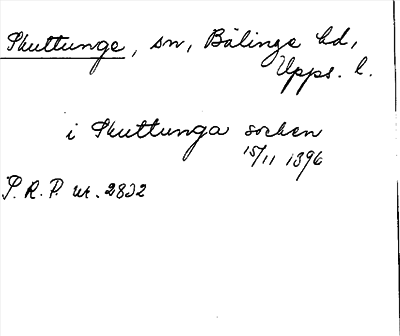 Skuttunge, sn, Bälinge hd,
Upps. l.
i Skuttunga socken
15/11 1396
P.R.P. nr. 2832